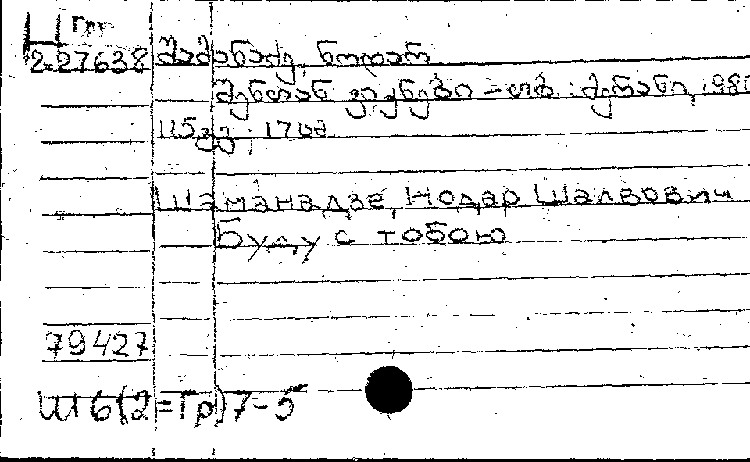 Гру
2.27638 შამანაძე, ნოდარ
შენთან ვიქნები – თბ. : მერანი, 198
115 გვ ; 17 სმ
Шаманадзе, Нодар Шалвович
Буду с тобою
79427
Ш6(2=Гр)7-5